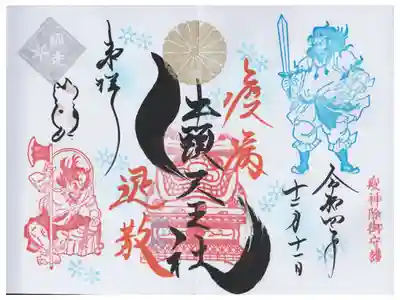 疫神除御守護
令和四年
十二月十一日
疫病
牛頭天王社
退散
奉拝